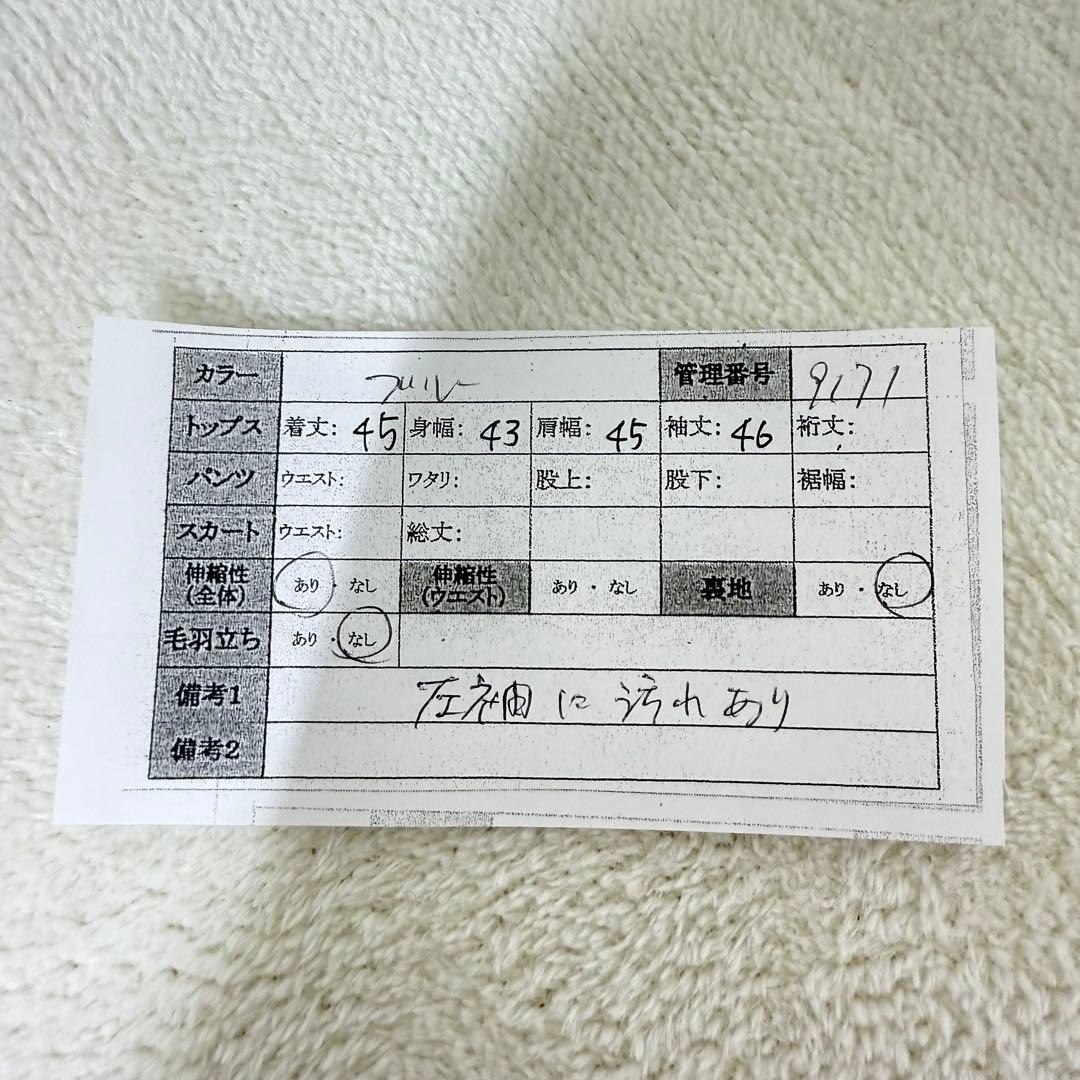 カラー ブルー 管理番号 9171
トップス 着丈: 45 身幅: 43 肩幅: 45 袖丈: 46 裄丈:
パンツ ウエスト: ワタリ: 股上: 股下: 裾幅:
スカート ウエスト: 総丈:
伸縮性(全体) あり・なし 伸縮性(ウエスト) あり・なし 裏地 あり・なし
毛羽立ち あり・なし
備考1 左袖に汚れあり
備考2